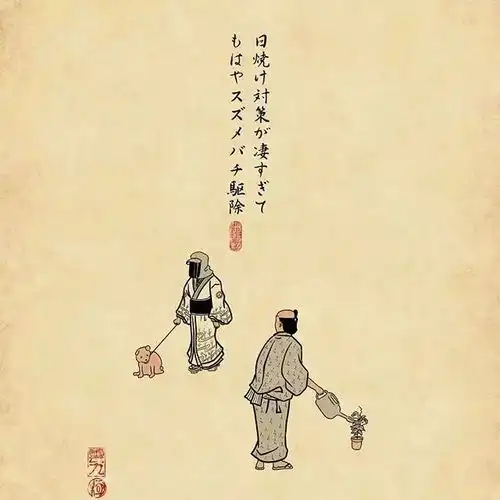 日焼け対策が凄すぎて
もはやスズメバチ駆除